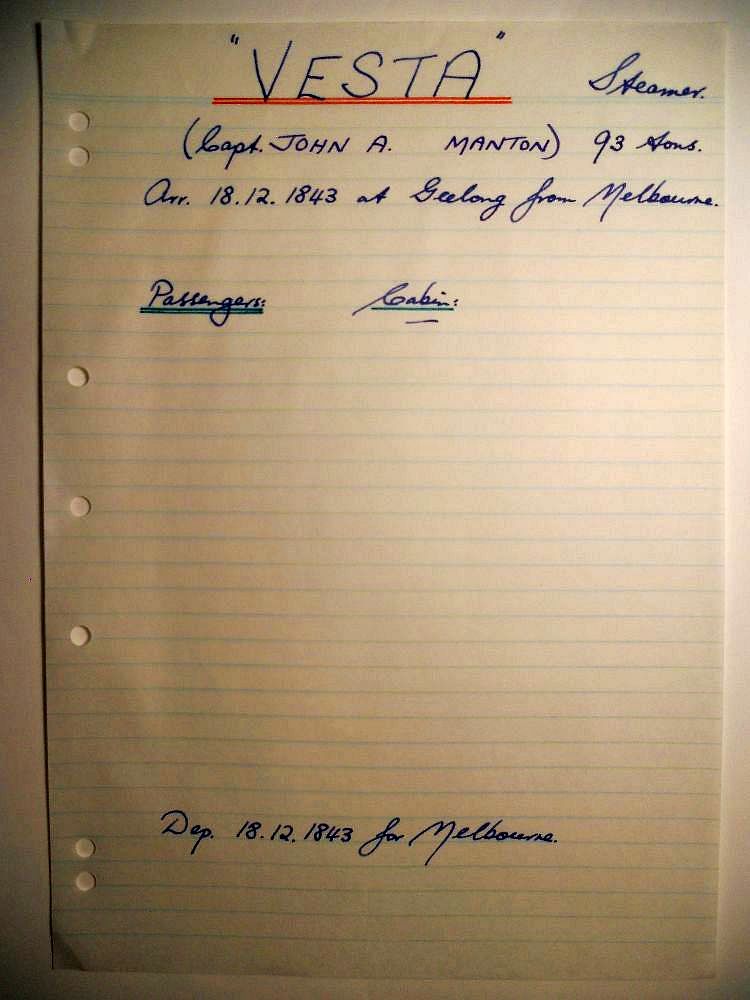 "VESTA" Steamer.
(Capt. JOHN A. MANTON) 93 tons.
Arr. 18.12.1843 at Geelong from Melbourne.
Passengers: Cabin:
—
Dep. 18.12.1843 for Melbourne.